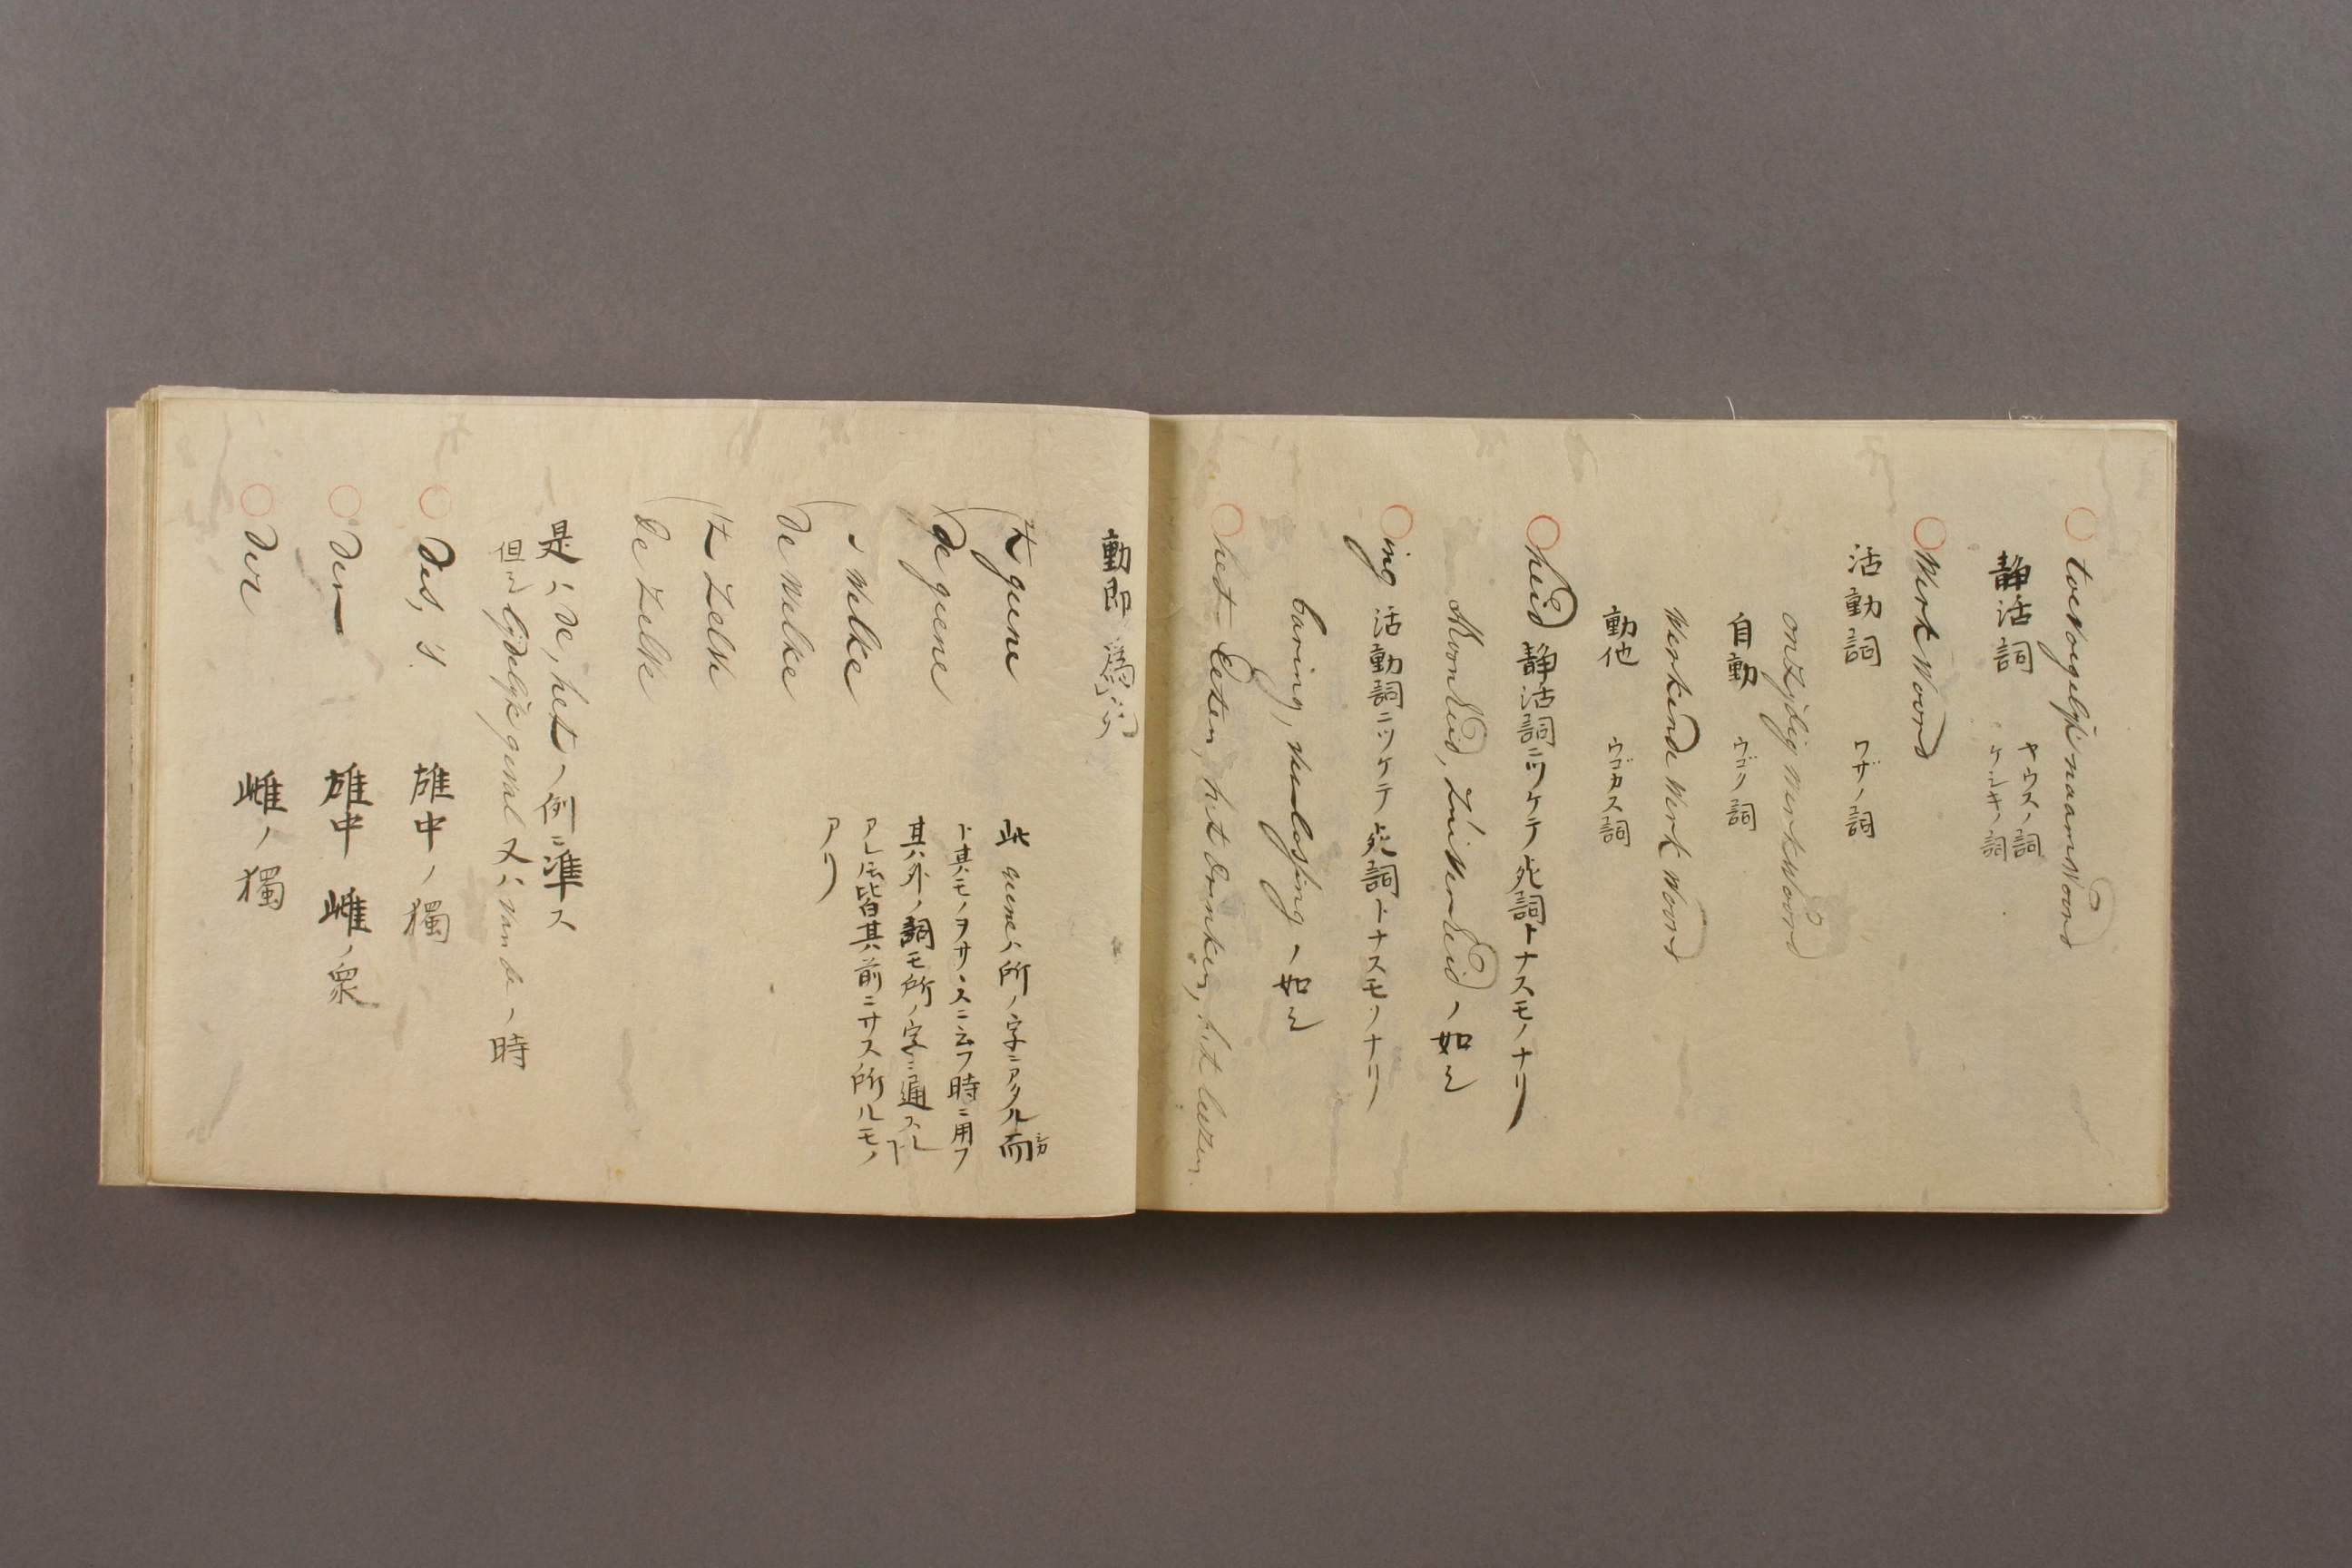 ○ toevoegelijk naamwoord
静活詞 ヤウスノ詞
ケシキノ詞
○ Werkwoord
活動詞 ワザノ詞
onzijdig werkwoord
自動 ウゴク詞
Werkende werk woord
動他 ウゴカス詞
○ heid 静活詞ニツケテ死詞トナスモノナリ
Moonheid, Zuiverheid, ノ如シ
○ ing 活動詞ニツケテ死詞トナスモノナリ
baring, verlossing ノ如シ
○ het Eeten, het drinken, het leezen.
動即
't geene
de geene
、 Welke
de Welke
't Zelve
de Zelve
此 geeneハ所ノ字ニアタル而シカ
ト其モノヲサヽスニ云フ時ニ用フ
其外ノ詞モ所ノ字ニ通スレ𪜈
アレ𪜈皆其前ニサス所ルモノ
アリ
是ハ de, het ノ例ニ準ス
但シ lijdelijk geval 又ハ van de ノ時
○ des, 's 雄中ノ獨
○ den 雄中 雌ノ衆
○ der 雌ノ獨